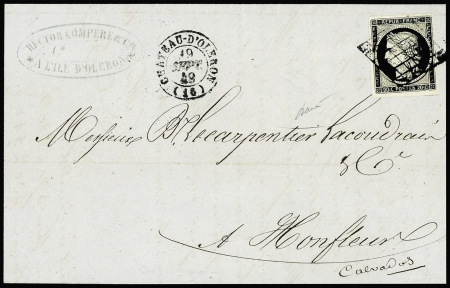 HECTOR COMPÈRE & Cie
A L'ILE D'OLERON
CHATEAU-D'OLERON
19
SEPT
49
(16)
REPUB. FRANC.
20 c POSTES 20 c
Messieurs Bd. Lecarpentier Lacoudrais
& Cie
A Honfleur
Calvados